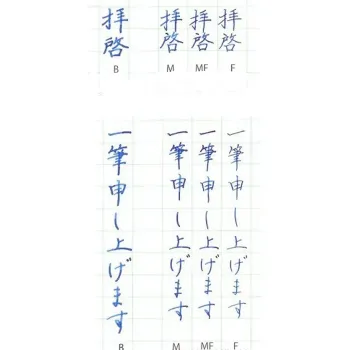 拝啓
B
拝啓
M
拝啓
MF
拝啓
F
一筆申し上げます
B
一筆申し上げます
M
一筆申し上げます
MF
一筆申し上げます
F